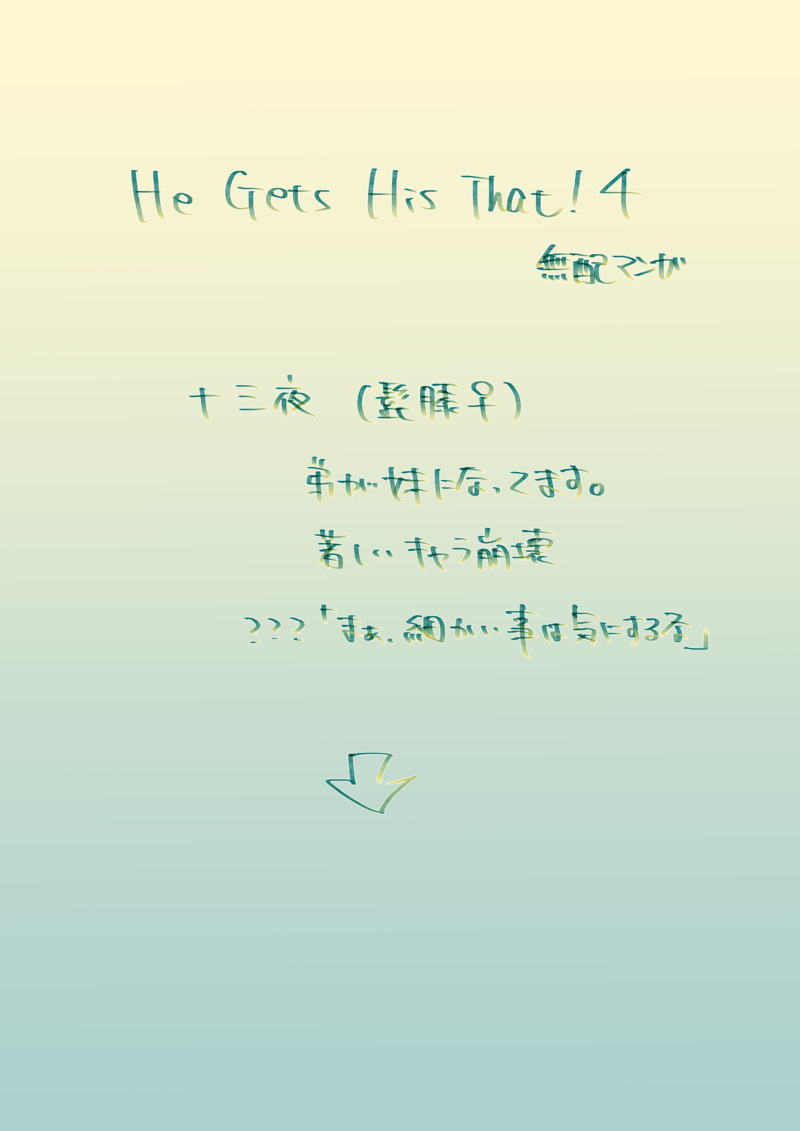 He Gets His That! 4
無配マンガ
十三夜 (髭膝♀)
弟が妹になってます。
著しいキャラ崩壊
???「まぁ、細かい事は気にするな」